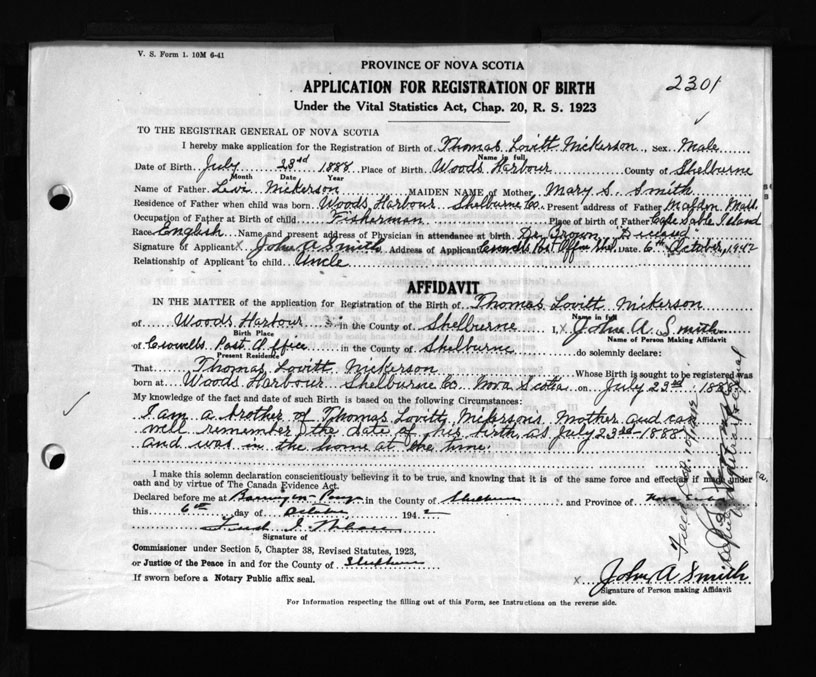 V. S. Form 1. 10M 6-41
PROVINCE OF NOVA SCOTIA
APPLICATION FOR REGISTRATION OF BIRTH
2301
Under the Vital Statistics Act, Chap. 20, R. S. 1923
TO THE REGISTRAR GENERAL OF NOVA SCOTIA
I hereby make application for the Registration of Birth of Thomas Lovitt Nickerson, sex Male
Name in full
Date of Birth July 23rd 1888 Place of Birth Woods Harbour County of Shelburne
Month Date Year
Name of Father Levi Nickerson MAIDEN NAME of Mother Mary S. Smith
Residence of Father when child was born Woods Harbour Shelburne Co. Present address of Father Malden Mass
Occupation of Father at Birth of child Fisherman Place of birth of Father Cape Sable Island
Race English Name and present address of Physician in attendance at birth Dr. Brown Diseased
Signature of Applicant X John A Smith Address of Applicant Crowells Post Office Date 6th October, 1942
Relationship of Applicant to child Uncle
AFFIDAVIT
IN THE MATTER of the application for Registration of the Birth of Thomas Lovitt Nickerson
Name in full
of Woods Harbour in the County of Shelburne I, X John A. Smith
Birth Place Name of Person Making Affidavit
of Crowells Post Office in the County of Shelburne do solemnly declare:
Present Residence
That Thomas Lovitt Nickerson Whose Birth is sought to be registered was
born at Woods Harbour Shelburne Co. Nova Scotia on July 23rd 1888
My knowledge of the fact and date of such Birth is based on the following Circumstances:
I am a brother of Thomas Lovitt Nickersons Mother and can
well remember the date of his birth as July 23rd-1888
and was in the home at the time.
I make this solemn declaration conscientiously believing it to be true, and knowing that it is of the same force and effect as if made under
oath and by virtue of The Canada Evidence Act.
Declared before me at Barrington Passage in the County of Shelburne and Province of Nova Scotia
this 6th day of October 1942
Signature of
Commissioner under Section 5, Chapter 38, Revised Statutes, 1923,
or Justice of the Peace in and for the County of Shelburne
If sworn before a Notary Public affix seal.
X John A Smith
Signature of Person making Affidavit
For Information respecting the filling out of this Form, see Instructions on the reverse side.